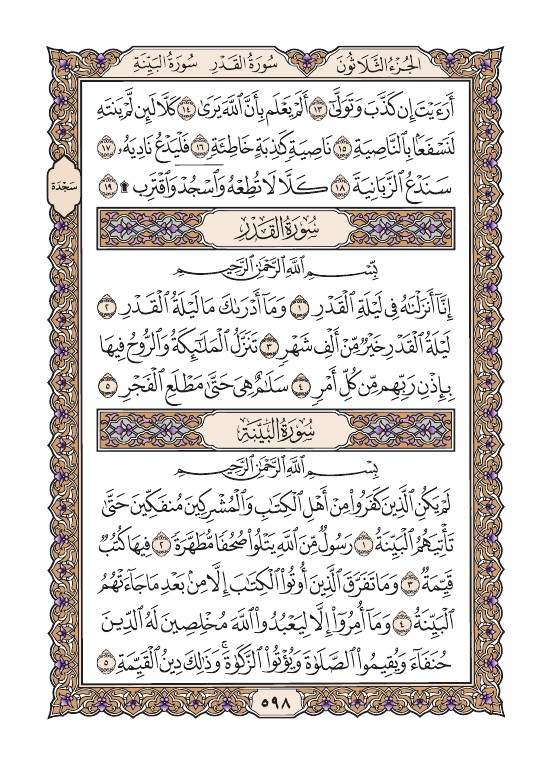 الجزء الثلاثون سورة القدر سورة البينة
أَرَءَيۡتَ إِن كَذَّبَ وَتَوَلَّىٰٓ ١٣ أَلَمۡ يَعۡلَم بِأَنَّ ٱللَّهَ يَرَىٰ ١٤ كَلَّا لَئِن لَّمۡ يَنتَهِ
لَنَسۡفَعَۢا بِٱلنَّاصِيَةِ ١٥ نَاصِيَةٖ كَٰذِبَةٍ خَاطِئَةٖ ١٦ فَلۡيَدۡعُ نَادِيَهُۥ ١٧
سَنَدۡعُ ٱلزَّبَانِيَةَ ١٨ كَلَّا لَا تُطِعۡهُ وَٱسۡجُدۡۤ وَٱقۡتَرِب۩ ١٩
سجدة
سُورَةُ القَدۡرِ
بِسۡمِ ٱللَّهِ ٱلرَّحۡمَٰنِ ٱلرَّحِيمِ
إِنَّآ أَنزَلۡنَٰهُ فِي لَيۡلَةِ ٱلۡقَدۡرِ ١ وَمَآ أَدۡرَىٰكَ مَا لَيۡلَةُ ٱلۡقَدۡرِ ٢
لَيۡلَةُ ٱلۡقَدۡرِ خَيۡرٞ مِّنۡ أَلۡفِ شَهۡرٖ ٣ تَنَزَّلُ ٱلۡمَلَٰٓئِكَةُ وَٱلرُّوحُ فِيهَا
بِإِذۡنِ رَبِّهِم مِّن كُلِّ أَمۡرٖ ٤ سَلَٰمٌ هِيَ حَتَّىٰ مَطۡلَعِ ٱلۡفَجۡرِ ٥
سُورَةُ البَيِّنَةِ
بِسۡمِ ٱللَّهِ ٱلرَّحۡمَٰنِ ٱلرَّحِيمِ
لَمۡ يَكُنِ ٱلَّذِينَ كَفَرُواْ مِنۡ أَهۡلِ ٱلۡكِتَٰبِ وَٱلۡمُشۡرِكِينَ مُنفَكِّينَ حَتَّىٰ
تَأۡتِيَهُمُ ٱلۡبَيِّنَةُ ١ رَسُولٞ مِّنَ ٱللَّهِ يَتۡلُواْ صُحُفٗا مُّطَهَّرَةٗ ٢ فِيهَا كُتُبٞ
قَيِّمَةٞ ٣ وَمَا تَفَرَّقَ ٱلَّذِينَ أُوتُواْ ٱلۡكِتَٰبَ إِلَّا مِنۢ بَعۡدِ مَا جَآءَتۡهُمُ
ٱلۡبَيِّنَةُ ٤ وَمَآ أُمِرُوٓاْ إِلَّا لِيَعۡبُدُواْ ٱللَّهَ مُخۡلِصِينَ لَهُ ٱلدِّينَ
حُنَفَآءَ وَيُقِيمُواْ ٱلصَّلَوٰةَ وَيُؤۡتُواْ ٱلزَّكَوٰةَۚ وَذَٰلِكَ دِينُ ٱلۡقَيِّمَةِ ٥
٥٩٨